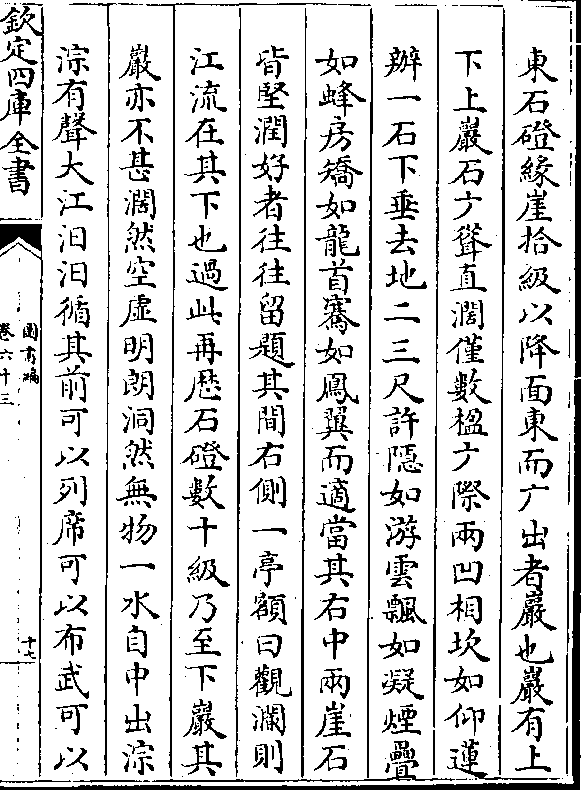 東石磴緣崖拾級以降面東而广出者巖也巖有上
下上巖石广聳直濶僅數楹广際兩凹相坎如仰蓮
辦一石下垂去地二三尺許隱如游雲飄如凝煙疊
如蜂房矯如龍首騫如鳳翼而適當其右中兩崖石
皆堅潤好者往往留題其間右側一亭額曰觀瀾則
江流在其下也過此再歴石磴數十級乃至下巖其
巖亦不甚濶然空虛明朗洞然無物一水自中出淙
淙有聲大江汩汩循其前可以列席可以布武可以
欽定四庫全書
圖書編
卷六十三
十七